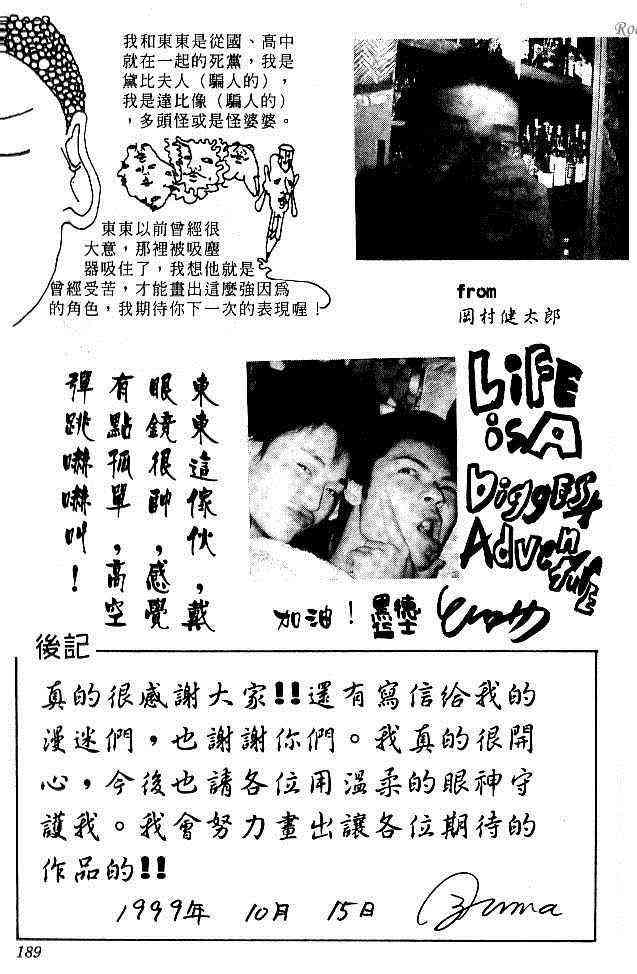 我和東東是從國、高中
就在一起的死黨，我是
黛比夫人（騙人的），
我是達比像（騙人的）
，多頭怪或是怪婆婆。
東東以前曾經很
大意，那裡被吸塵
器吸住了，我想他就是
曾經受苦，才能畫出這麼強因爲
的角色，我期待你下一次的表現喔！
from
岡村健太郎
東東這傢伙，戴
眼鏡很帥，感覺
有點孤單，高空
彈跳嚇嚇叫！
LiFE
is A
biggest
Adventure
加油！
後記
真的很感謝大家!!還有寫信給我的
漫迷們，也謝謝你們。我真的很開
心，今後也請各位用溫柔的眼神守
護我。我會努力畫出讓各位期待的
作品的!!
1999年 10月 15日
189